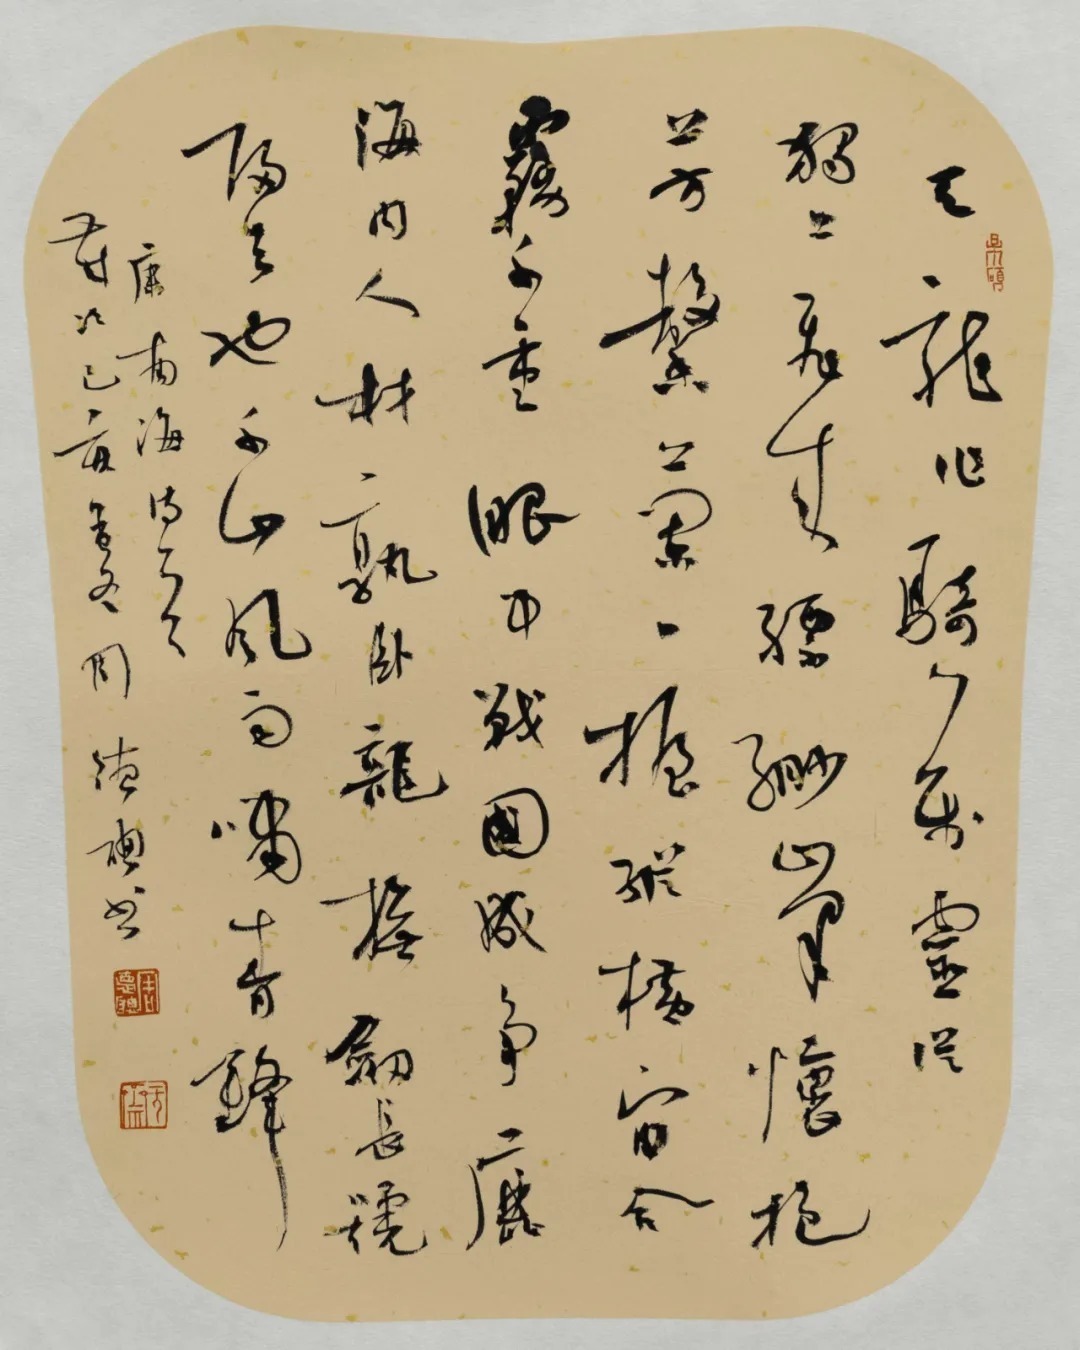 天龍作騎萬靈從
獨立飛來縹緲峯懷抱
芳馨蘭一握縱橫宙合
霧千重眼中戰國成爭鹿
海內人材孰卧龍撫劍長號
歸去也千山風雨嘯青鋒
康南海詩
歲次己亥冬周德聰書
周德聰